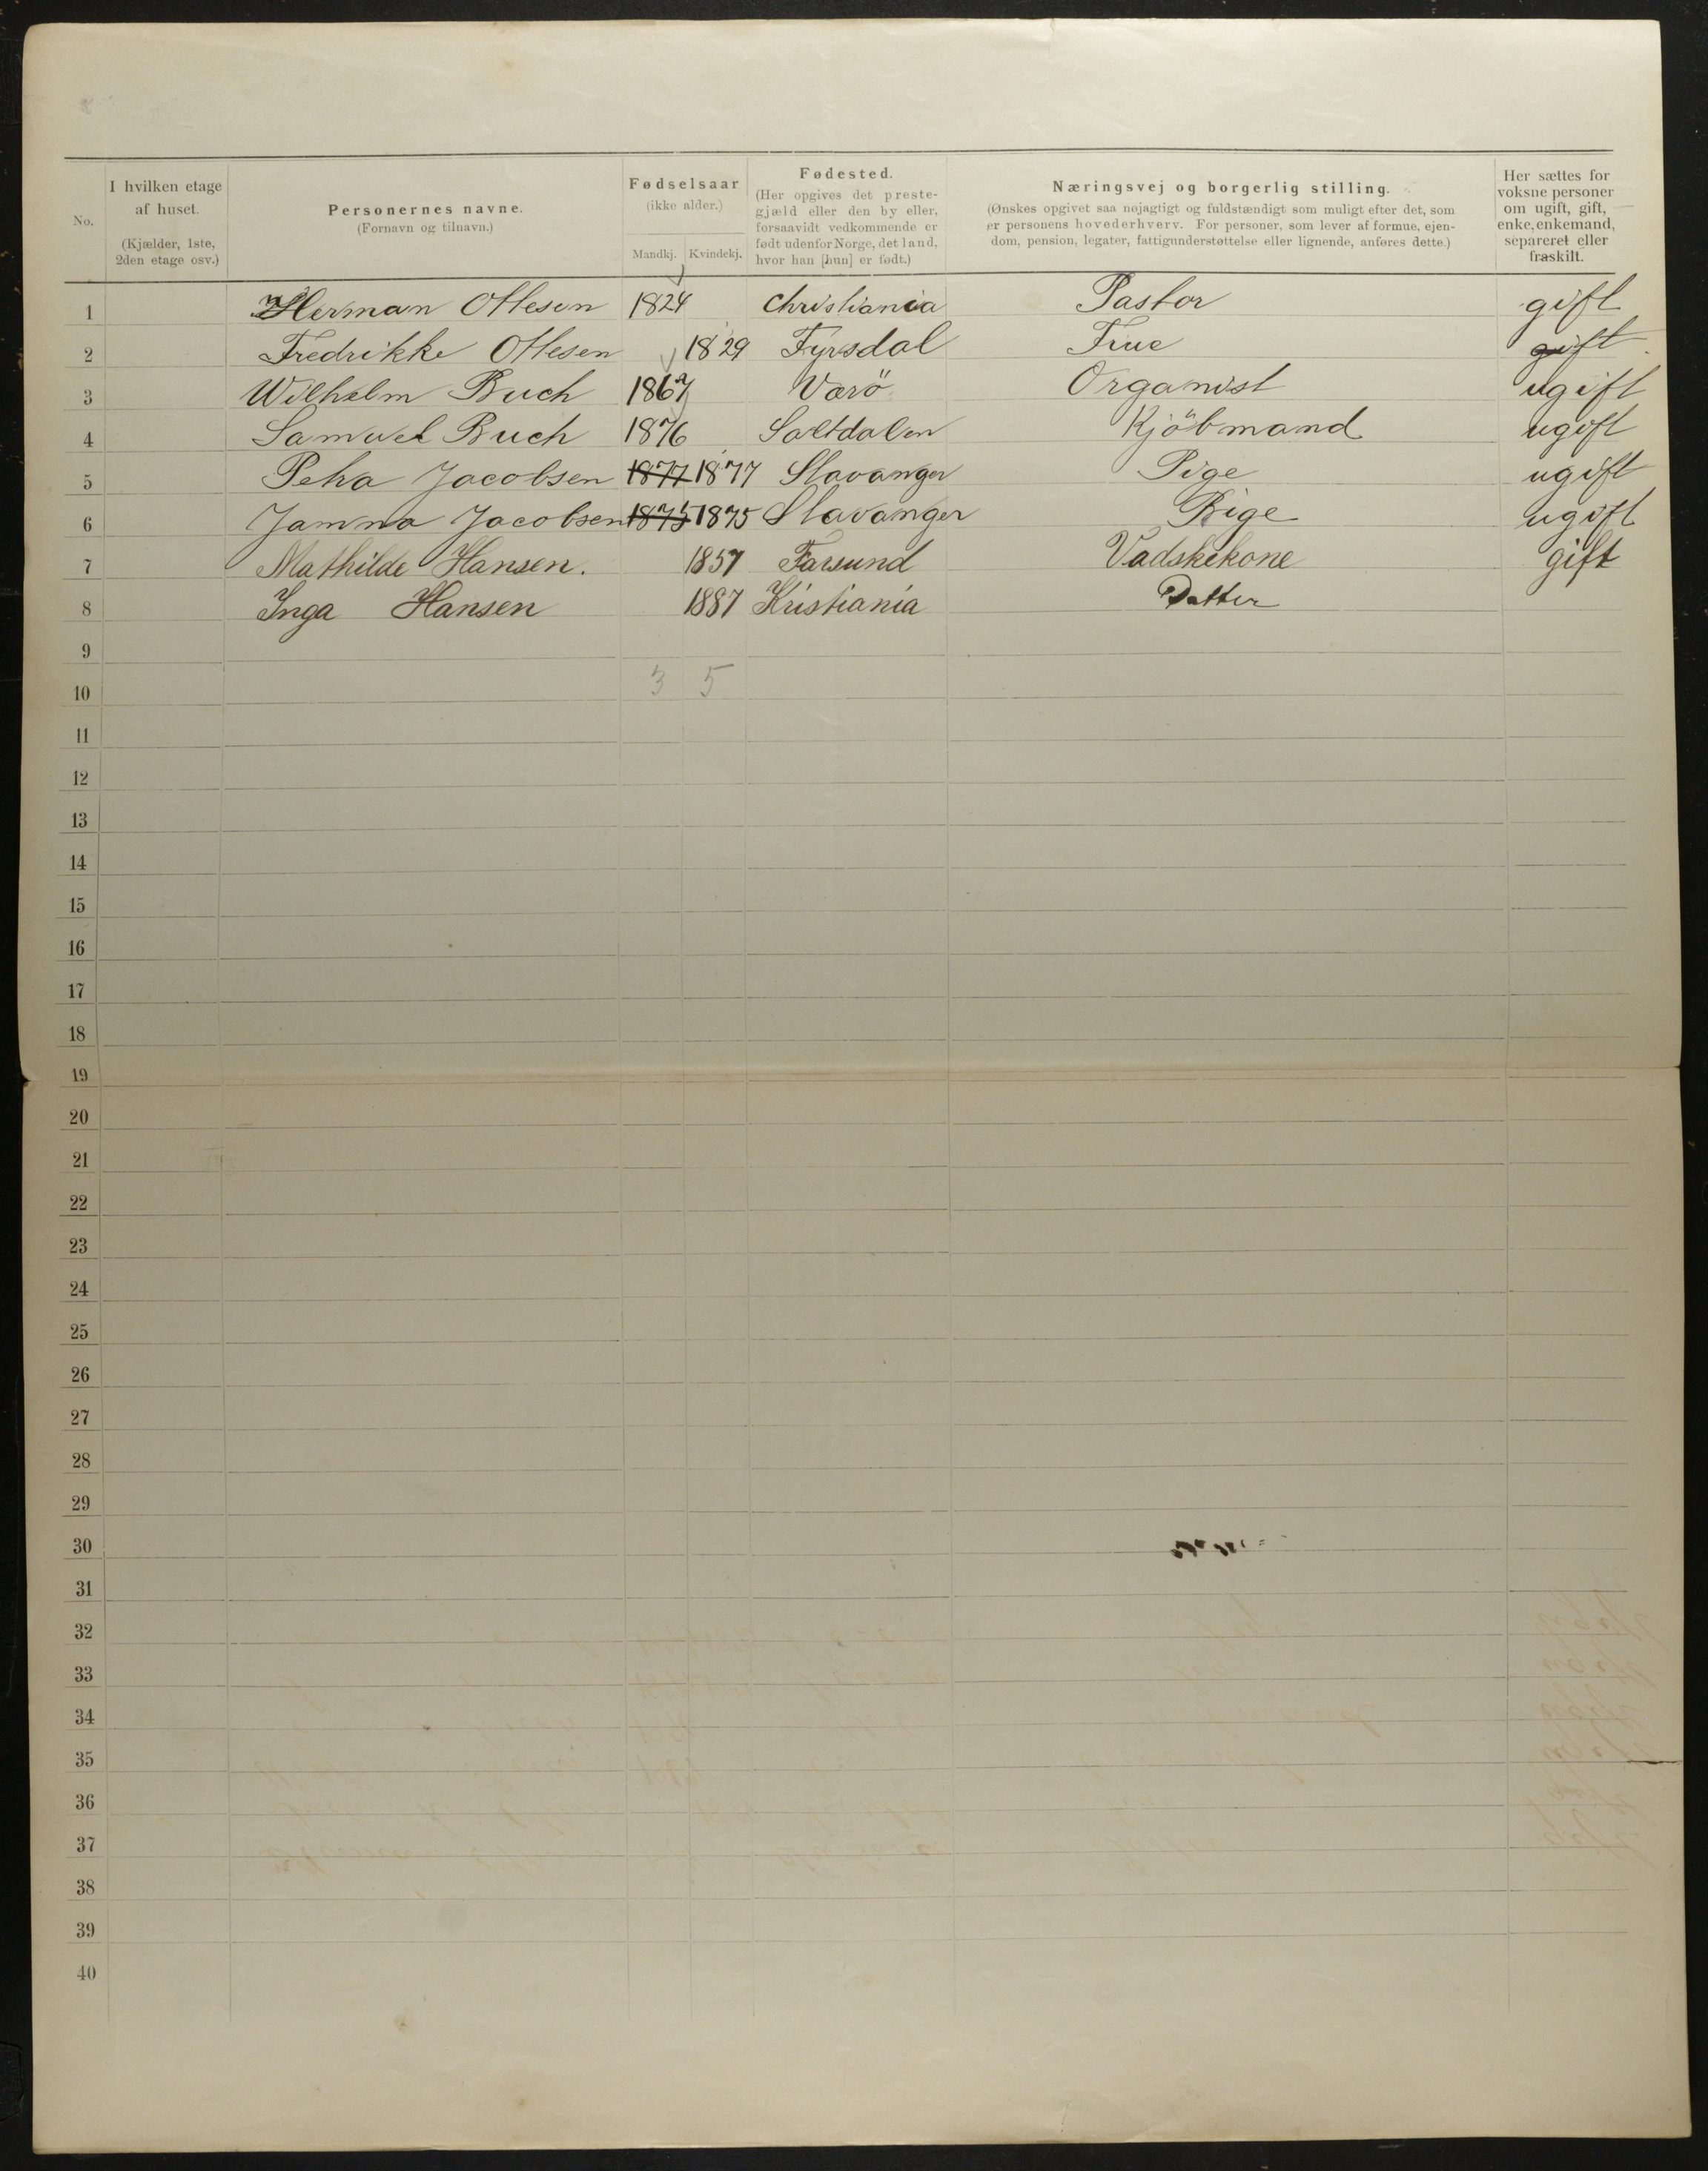 No.
I hvilken etage af huset. (Kjælder, 1ste, 2den etage osv.)
Personernes navne. (Fornavn og tilnavn.)
Fødselsaar (ikke alder.)
Mandkj. Kvindekj.
Fødested. (Her opgives det prestegjæld eller den by eller, forsaavidt vedkommende er født udenfor Norge, det land, hvor han [hun] er født.)
Næringsvej og borgerlig stilling.
(Ønskes opgivet saa nøjagtigt og fuldstændigt som muligt efter det, som er personens hovederhverv. For personer, som lever af formue, ejendom, pension, legater, fattigunderstøttelse eller lignende, anføres dette.)
Her sættes for voksne personer om ugift, gift, enke, enkemand, separeret eller fraskilt.
1 Herman Ottesen 1824 Christiania Pastor gift
2 Fredrikke Ottesen 1829 Fyrsdal Frue gift
3 Wilhelm Buch 1867 Værö Organist ugift
4 Samuel Buch 1876 Saltdalen Kjöbmand ugift
5 Petra Jacobsen 1877 1877 Stavanger Pige ugift
6 Janna Jacobsen 1875 1875 Stavanger Pige ugift
7 Mathilde Hansen. 1857 Farsund Vadskekone gift
8 Inga Hansen 1887 Kristiania Datter
9
10 3 5
11
12
13
14
15
16
17
18
19
20
21
22
23
24
25
26
27
28
29
30
31
32
33
34
35
36
37
38
39
40